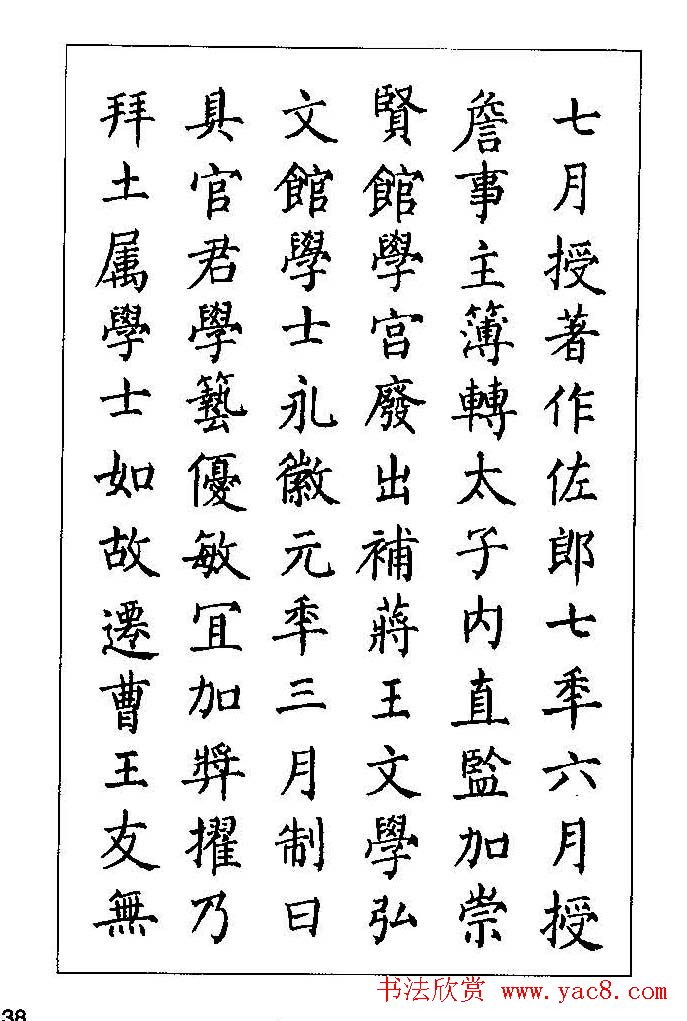 七月授著作佐郎七秊六月授
詹事主簿轉太子内直監加崇
賢館學宫廢出補蔣王文學弘
文館學士永徽元秊三月制曰
具官君學藝優敏冝加奬擢乃
拜土属學士如故遷曹王友無
38
书法欣赏 www.yac8.com